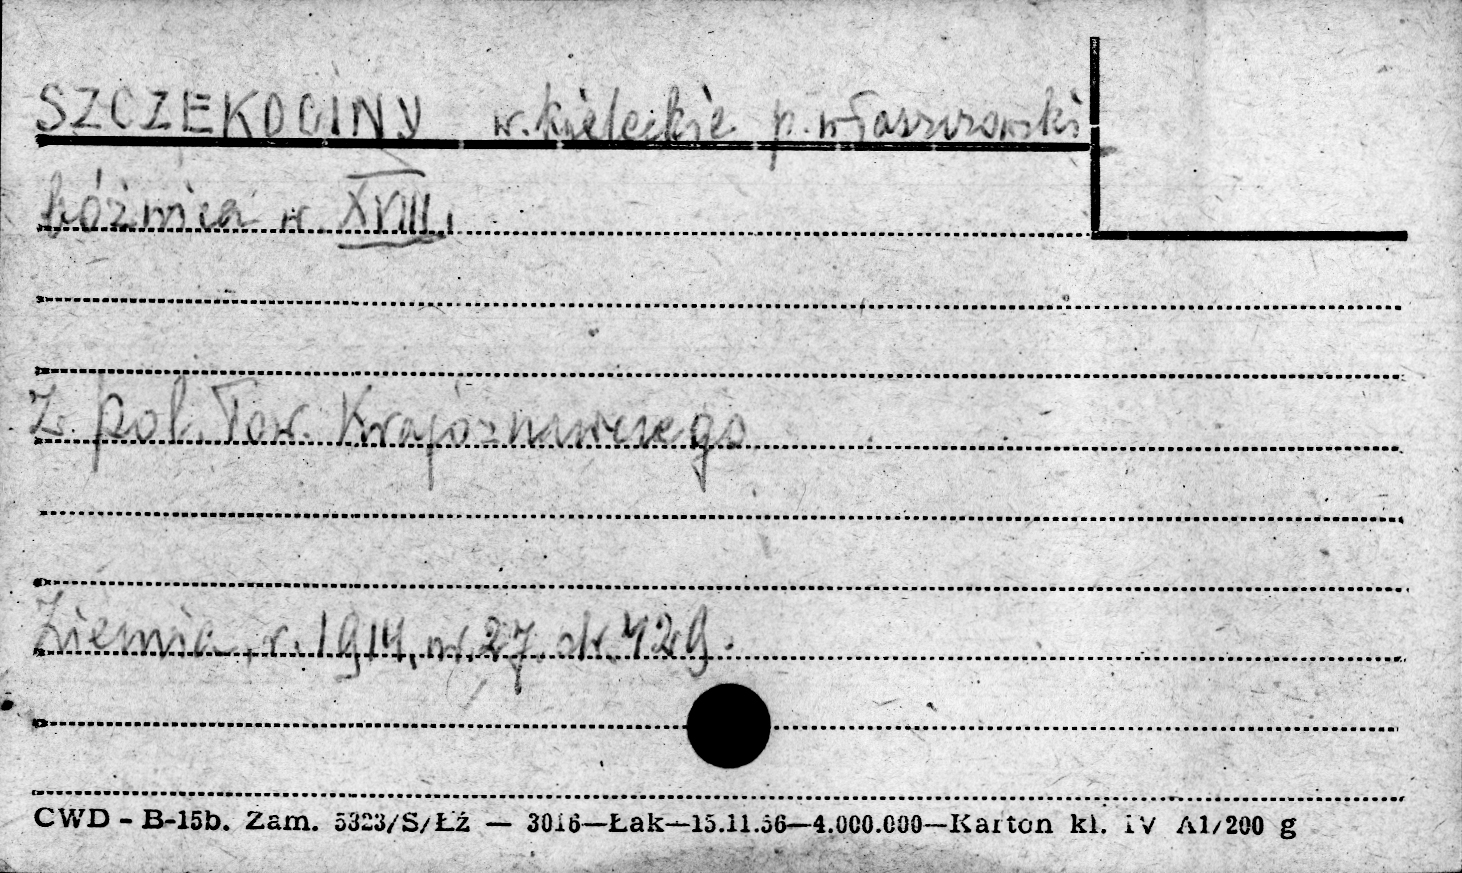 SZCZEKOCINY w. kieleckie p. włoszczowski
bóżnica w. XVIII.
Z. pol. Tow. Krajoznawczego
Ziemia, r. 1914, nr. 27. str. 429.
CWD - B-15b. Zam. 5323/S/Łź — 3016—Łak—15.11.56—4.000.000—Karton kl. IV A1/200 g